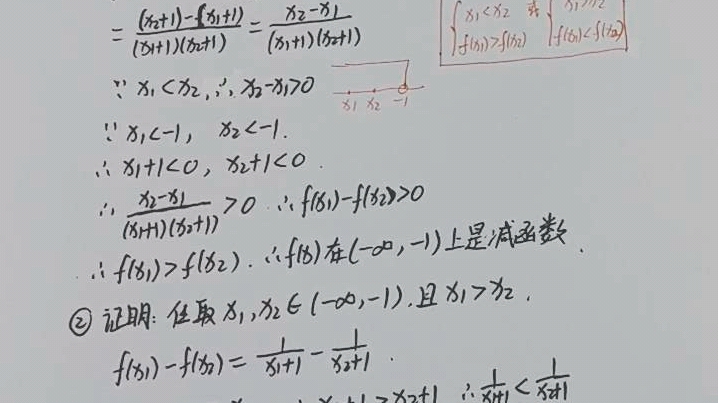 = \frac{(x_2+1)-(x_1+1)}{(x_1+1)(x_2+1)} = \frac{x_2-x_1}{(x_1+1)(x_2+1)}
{x_1<x_2 或 {x_1>x_2
f(x_1)>f(x_2) f(x_1)<f(x_2)
∵ x_1<x_2, ∴ x_2-x_1>0
x_1 x_2 -1
∵ x_1<-1, x_2<-1.
∴ x_1+1<0, x_2+1<0.
∴ \frac{x_2-x_1}{(x_1+1)(x_2+1)} >0 ∴ f(x_1)-f(x_2)>0
∴ f(x_1)>f(x_2). ∴ f(x)在(-∞,-1)上是减函数.
② 证明: 任取 x_1,x_2∈(-∞,-1), 且 x_1>x_2.
f(x_1)-f(x_2) = \frac{1}{x_1+1} - \frac{1}{x_2+1}.
x_1+1>x_2+1 ∴ \frac{1}{x_1+1} < \frac{1}{x_2+1}